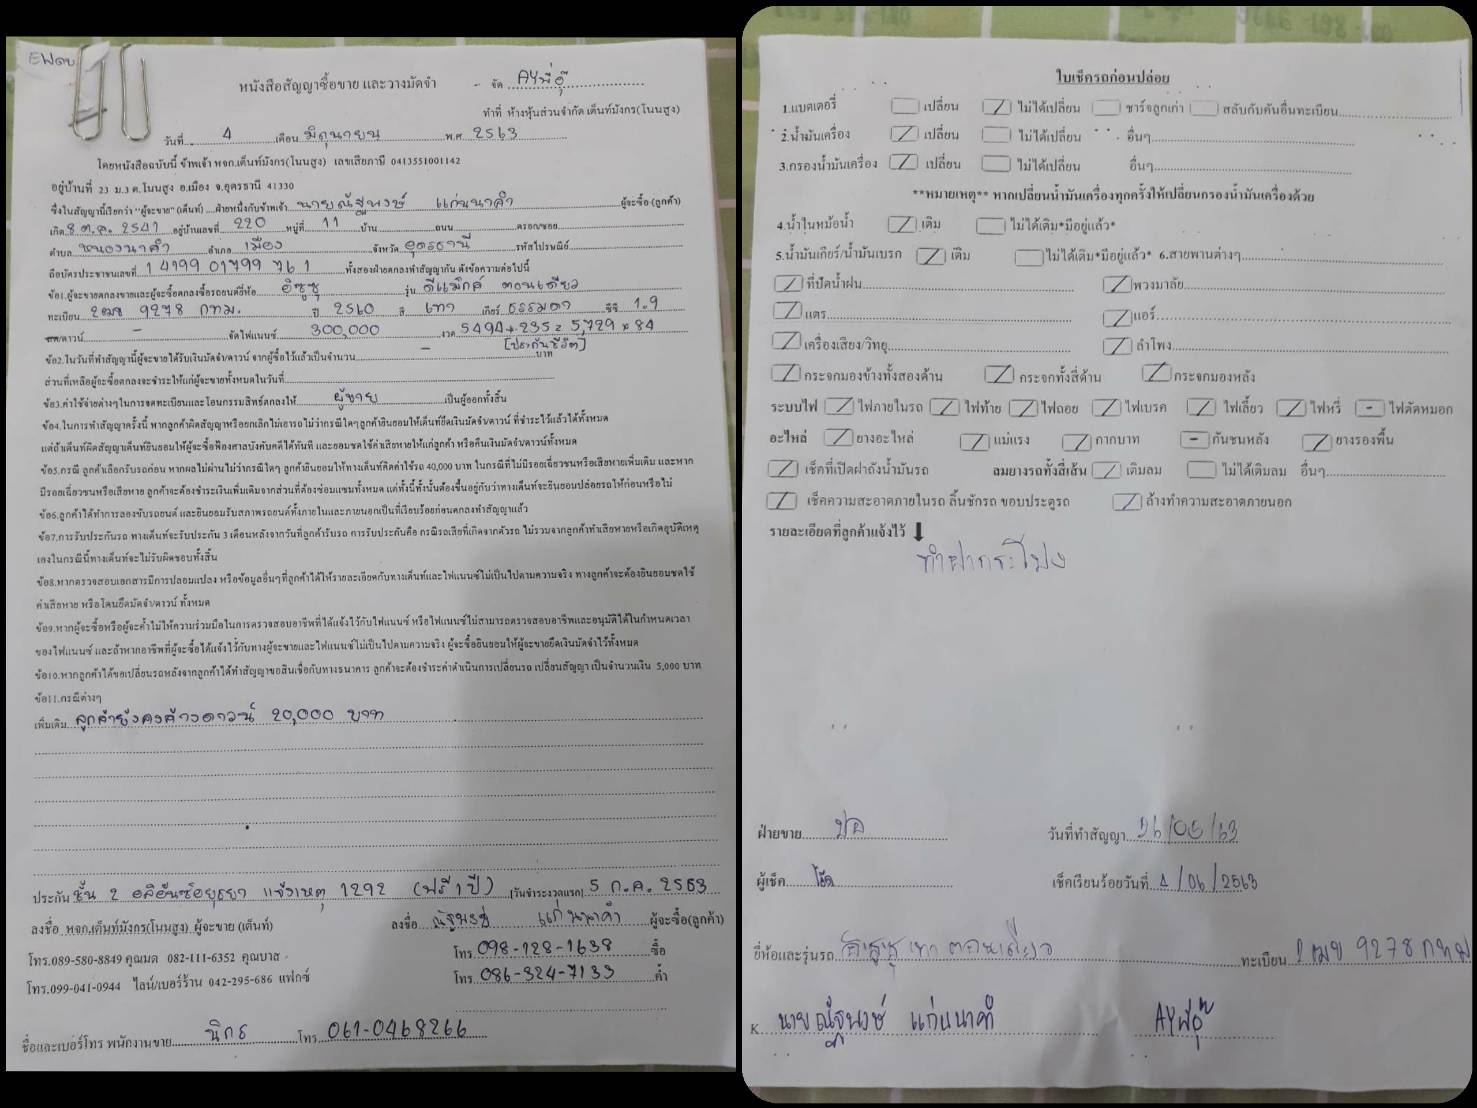 EWดบ
หนังสือสัญญาซื้อขาย และวางมัดจำ - จัด AYพี่อุ๊
ทำที่ ห้างหุ้นส่วนจำกัด เต็นท์มังกร(โนนสูง)
วันที่ 4 เดือน มิถุนายน พ.ศ 2563
โดยหนังสือฉบับนี้ ข้าพเจ้า หจก.เต็นท์มังกร(โนนสูง) เลขเสียภาษี 0413551001142
อยู่บ้านที่ 23 ม.3 ต.โนนสูง อ.เมือง จ.อุดรธานี 41330
ซึ่งในสัญญานี้เรียกว่า "ผู้จะขาย"(เต็นท์) ...ฝ่ายหนึ่งกับข้าพเจ้า นายณัฐพงษ์ แก่นนาคำ ผู้จะซื้อ (ลูกค้า)
เกิด 8 ต.ค. 2541 อยู่บ้านเลขที่ 220 หมู่ที่ 11 บ้าน ถนน ตรอก/ซอย
ตำบล หนองนาคำ อำเภอ เมือง จังหวัด อุดรธานี รหัสไปรษณีย์
ถือบัตรประชาชนเลขที่ 1 4199 01799 76 1 ทั้งสองฝ่ายตกลงทำสัญญากัน ดังข้อความต่อไปนี้
ข้อ1.ผู้จะขายตกลงขายและผู้จะซื้อตกลงซื้อรถยนต์ยี่ห้อ อีซูซุ รุ่น ดีแม็กซ์ ตอนเดียว
ทะเบียน 2ฒข 9278 กทม. ปี 2560 สี เทา เกียร์ ธรรมดา ซีซี 1.9
ดาวน์ - จัดไฟแนนซ์ 300,000 งวด 5494 + 235 = 5,729 x 84
[ประกันชีวิต]
ข้อ2.ในวันที่ทำสัญญานี้ผู้จะขายได้รับเงินมัดจำ/ดาวน์ จากผู้ซื้อไว้แล้วเป็นจำนวน - บาท
ส่วนที่เหลือผู้จะซื้อตกลงจะชำระให้แก่ผู้จะขายทั้งหมดในวันที่
ข้อ3.ค่าใช้จ่ายต่างๆในการจดทะเบียนและโอนกรรมสิทธิ์ตกลงให้ ผู้ขาย เป็นผู้ออกทั้งสิ้น
ข้อ4.ในการทำสัญญาครั้งนี้ หากลูกค้าผิดสัญญาหรือยกเลิกไม่เอารถไม่ว่ากรณีใดๆลูกค้ายินยอมให้เต็นท์ยึดเงินมัดจำ/ดาวน์ ที่ชำระไว้แล้วได้ทั้งหมด
แต่ถ้าเต็นท์ผิดสัญญาเต็นท์ยินยอมให้ผู้ซื้อฟ้องศาลบังคับคดีได้ทันที และยอมชดใช้ค่าเสียหายให้แก่ลูกค้า หรือคืนเงินมัดจำ/ดาวน์ทั้งหมด
ข้อ5.กรณี ลูกค้าเลือกรับรถก่อน หากผลไม่ผ่านไม่ว่ากรณีใดๆ ลูกค้ายินยอมให้ทางเต็นท์คิดค่าใช้รถ 40,000 บาท ในกรณีที่ไม่มีรอยเฉี่ยวชนหรือเสียหายเพิ่มเติม และหาก
มีรอยเฉี่ยวชนหรือเสียหาย ลูกค้าจะต้องชำระเงินเพิ่มเติมจากส่วนที่ต้องซ่อมแซมทั้งหมด แต่ทั้งนี้ทั้งนั้นต้องขึ้นอยู่กับว่าทางเต็นท์จะยินยอมปล่อยรถให้ก่อนหรือไม่
ข้อ6.ลูกค้าได้ทำการลองขับรถยนต์ และยินยอมรับสภาพรถยนต์ทั้งภายในและภายนอกเป็นที่เรียบร้อยก่อนตกลงทำสัญญาแล้ว
ข้อ7.การรับประกันรถ ทางเต็นท์จะรับประกัน 3 เดือนหลังจากวันที่ลูกค้ารับรถ การรับประกันคือ กรณีรถเสียที่เกิดจากตัวรถ ไม่รวมจากลูกค้าทำเสียหายหรือเกิดอุบัติเหตุ
เองในกรณีนี้ทางเต็นท์จะไม่รับผิดชอบทั้งสิ้น
ข้อ8.หากตรวจสอบเอกสารมีการปลอมแปลง หรือข้อมูลอื่นๆที่ลูกค้าได้ให้รายละเอียดกับทางเต็นท์และไฟแนนซ์ไม่เป็นไปตามความจริง ทางลูกค้าจะต้องยินยอมชดใช้
ค่าเสียหาย หรือโดนยึดมัดจำ/ดาวน์ ทั้งหมด
ข้อ9.หากผู้จะซื้อหรือผู้จะค้ำไม่ให้ความร่วมมือในการตรวจสอบอาชีพที่ได้แจ้งไว้กับไฟแนนซ์ หรือไฟแนนซ์ไม่สามารถตรวจสอบอาชีพและอนุมัติได้ในกำหนดเวลา
ของไฟแนนซ์ และถ้าหากอาชีพที่ผู้จะซื้อได้แจ้งไว้กับทางผู้จะขายและไฟแนนซ์ไม่เป็นไปตามความจริง ผู้จะซื้อยินยอมให้ผู้จะขายยึดเงินมัดจำไว้ทั้งหมด
ข้อ10.หากลูกค้าได้ขอเปลี่ยนรถหลังจากลูกค้าได้ทำสัญญาขอสินเชื่อกับทางธนาคาร ลูกค้าจะต้องชำระค่าดำเนินการเปลี่ยนรถ เปลี่ยนสัญญา เป็นจำนวนเงิน 5,000 บาท
ข้อ11.กรณีต่างๆ
เพิ่มเติม ลูกค้ายังคงค้างดาวน์ 20,000 บาท
ประกัน ชั้น 2 อลิอันซ์อยุธยา แจ้งเหตุ 1292 (ฟรี 1 ปี) [วันชำระงวดแรก] 5 ก.ค. 2563
ลงชื่อ หจก.เต็นท์มังกร(โนนสูง) ผู้จะขาย (เต็นท์) ลงชื่อ ณัฐพงษ์ แก่นนาคำ ผู้จะซื้อ(ลูกค้า)
โทร.089-580-8849 คุณมด 082-111-6352 คุณบาส โทร 098-128-1638 ซื้อ
โทร.099-041-0944 ไลน์/เบอร์ร้าน 042-295-686 แฟกซ์ โทร 086-324-7133 ค้ำ
ชื่อและเบอร์โทร พนักงานขาย นิกร โทร 061-0468266
ใบเช็ครถก่อนปล่อย
1.แบตเตอรี่ เปลี่ยน ไม่ได้เปลี่ยน ชาร์จลูกเก่า สลับกับคันอื่นทะเบียน
2.น้ำมันเครื่อง เปลี่ยน ไม่ได้เปลี่ยน อื่นๆ
3.กรองน้ำมันเครื่อง เปลี่ยน ไม่ได้เปลี่ยน อื่นๆ
**หมายเหตุ** หากเปลี่ยนน้ำมันเครื่องทุกครั้งให้เปลี่ยนกรองน้ำมันเครื่องด้วย
4.น้ำในหม้อน้ำ เติม ไม่ได้เติม*มีอยู่แล้ว*
5.น้ำมันเกียร์/น้ำมันเบรก เติม ไม่ได้เติม*มีอยู่แล้ว* 6.สายพานต่างๆ
ที่ปัดน้ำฝน พวงมาลัย
แตร แอร์
เครื่องเสียง/วิทยุ ลำโพง
กระจกมองข้างทั้งสองด้าน กระจกทั้งสี่ด้าน กระจกมองหลัง
ระบบไฟ ไฟภายในรถ ไฟท้าย ไฟถอย ไฟเบรค ไฟเลี้ยว ไฟหรี่ - ไฟตัดหมอก
อะไหล่ ยางอะไหล่ แม่แรง กากบาท - กันชนหลัง ยางรองพื้น
เช็คที่เปิดฝาถังน้ำมันรถ ลมยางรถทั้งสี่เส้น เติมลม ไม่ได้เติมลม อื่นๆ
เช็คความสะอาดภายในรถ ลิ้นชักรถ ขอบประตูรถ ล้างทำความสะอาดภายนอก
รายละเอียดที่ลูกค้าแจ้งไว้
ทำฝากระโปง
ฝ่ายขาย ปอ วันที่ทำสัญญา 26/05/63
ผู้เช็ค เช็คเรียบร้อยวันที่ 4/06/2563
ยี่ห้อและรุ่นรถ อีซูซุ เทา ตอนเดียว ทะเบียน 2ฒข 9278 กทม
K. นายณัฐพงษ์ แก่นนาคำ AYพี่อุ๊